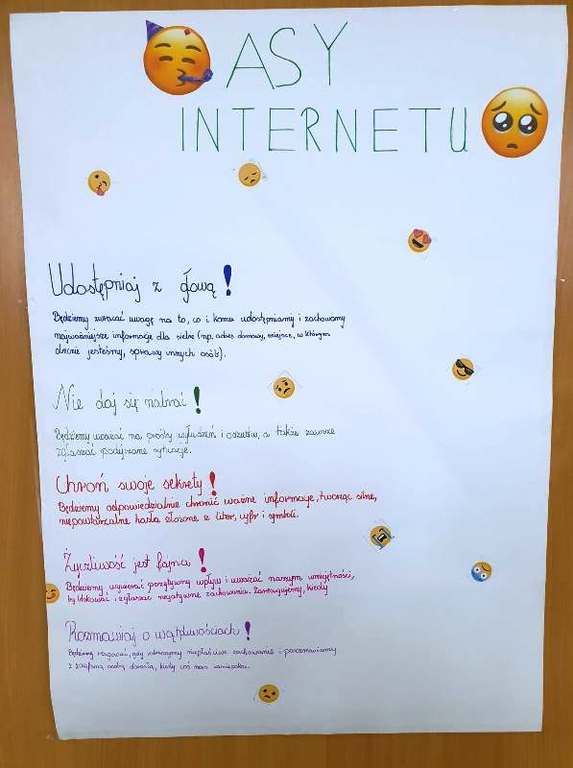 ASY
INTERNETU
Udostępniaj z głową!
Będziemy zwracać uwagę na to, co i komu udostępniamy i zachowamy
najważniejsze informacje dla siebie (np. adres domowy, miejsce, w którym
obecnie jesteśmy, sprawy innych osób).
Nie daj się nabrać!
Będziemy uważać na próby wyłudzeń i oszustw, a także zawsze
zgłaszać podejrzane sytuacje.
Chroń swoje sekrety!
Będziemy odpowiedzialnie chronić ważne informacje, tworząc silne,
niepowtarzalne hasła złożone z liter, cyfr i symboli.
Życzliwość jest fajna!
Będziemy wywierać pozytywny wpływ i uważać naszym umiejętności,
by blokować i zgłaszać negatywne zachowania. Zareagujemy, kiedy
Rozmawiaj o wątpliwościach!
Będziemy reagować, gdy zobaczymy niewłaściwe zachowanie i porozmawiamy
z zaufaną osobą dorosłą, kiedy coś nas zaniepokoi.